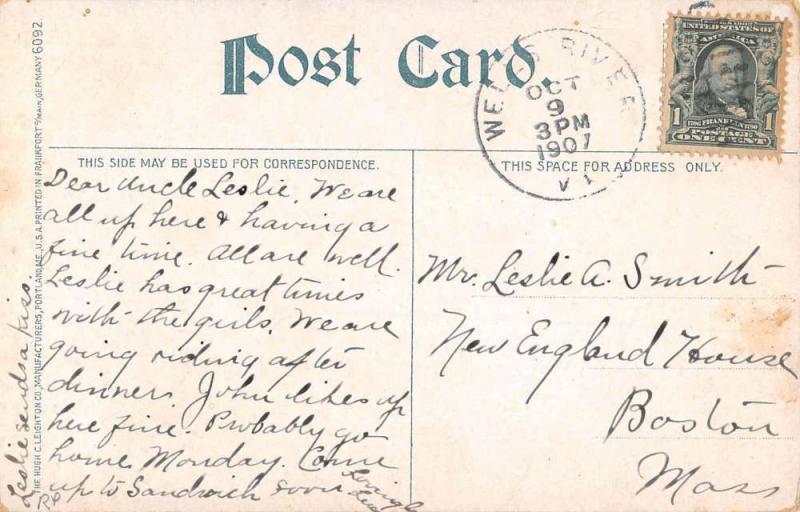 Post Card.
WELLS RIVER
OCT
9
3 PM
1907
VT
UNITED STATES OF AMERICA
1 1706 FRANKLIN 1790 1
POSTAGE
ONE CENT
THIS SIDE MAY BE USED FOR CORRESPONDENCE.
THIS SPACE FOR ADDRESS ONLY.
Dear Uncle Leslie. We are
all up here & having a
fine time. All are well.
Leslie has great times
with the girls. We are
going riding after
dinner. John likes up
here fine. Probably go
home Monday. Come
up to Sandwich soon
Lovingly
Leslie sends a kiss.
Mr. Leslie A. Smith
New England House
Boston
Mass
THE HUGH C. LEIGHTON CO., MANUFACTURERS, PORTLAND, ME., U.S.A. PRINTED IN FRANKFORT o/MAIN, GERMANY 6092